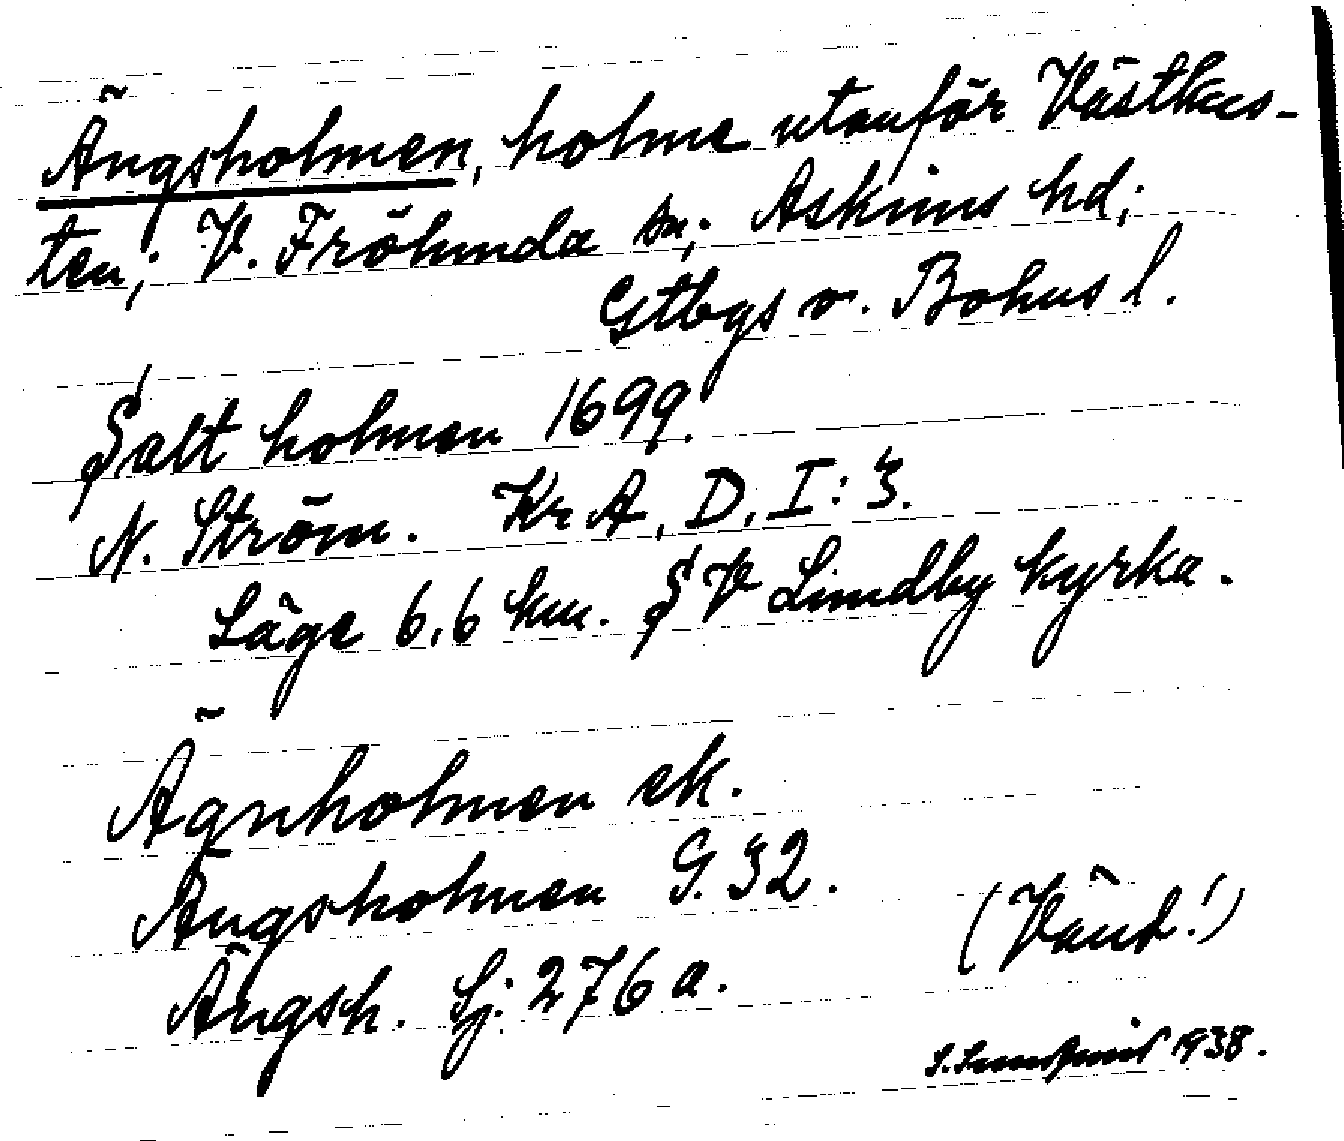 Ängsholmen, holme utanför Västkus-
ten; V. Fröhnda sn; Askims hd;
Gtbgs o. Bohus l.
Salt holmen 1699.
N. Ström. KrA, D, I: 3.
Läge 6,6 km. S V Lundby kyrka.
Ägnholmen ek.
Ängsholmen G. 32.
Ängsh. Sj. 276 a.
(Vänd!)
1938.